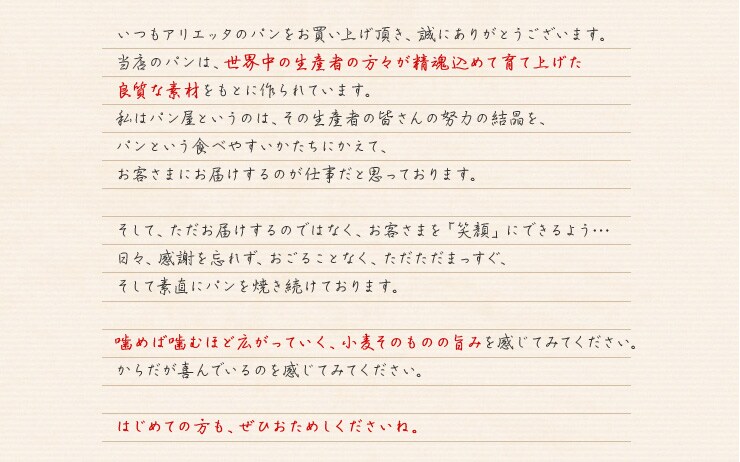 いつもアリエッタのパンをお買い上げ頂き、誠にありがとうございます。
当店のパンは、世界中の生産者の方々が精魂込めて育て上げた
良質な素材をもとに作られています。
私はパン屋というのは、その生産者の皆さんの努力の結晶を、
パンという食べやすいかたちにかえて、
お客さまにお届けするのが仕事だと思っております。
そして、ただお届けするのではなく、お客さまを「笑顔」にできるよう…
日々、感謝を忘れず、おごることなく、ただただまっすぐ、
そして素直にパンを焼き続けております。
噛めば噛むほど広がっていく、小麦そのものの旨みを感じてみてください。
からだが喜んでいるのを感じてみてください。
はじめての方も、ぜひおためしくださいね。